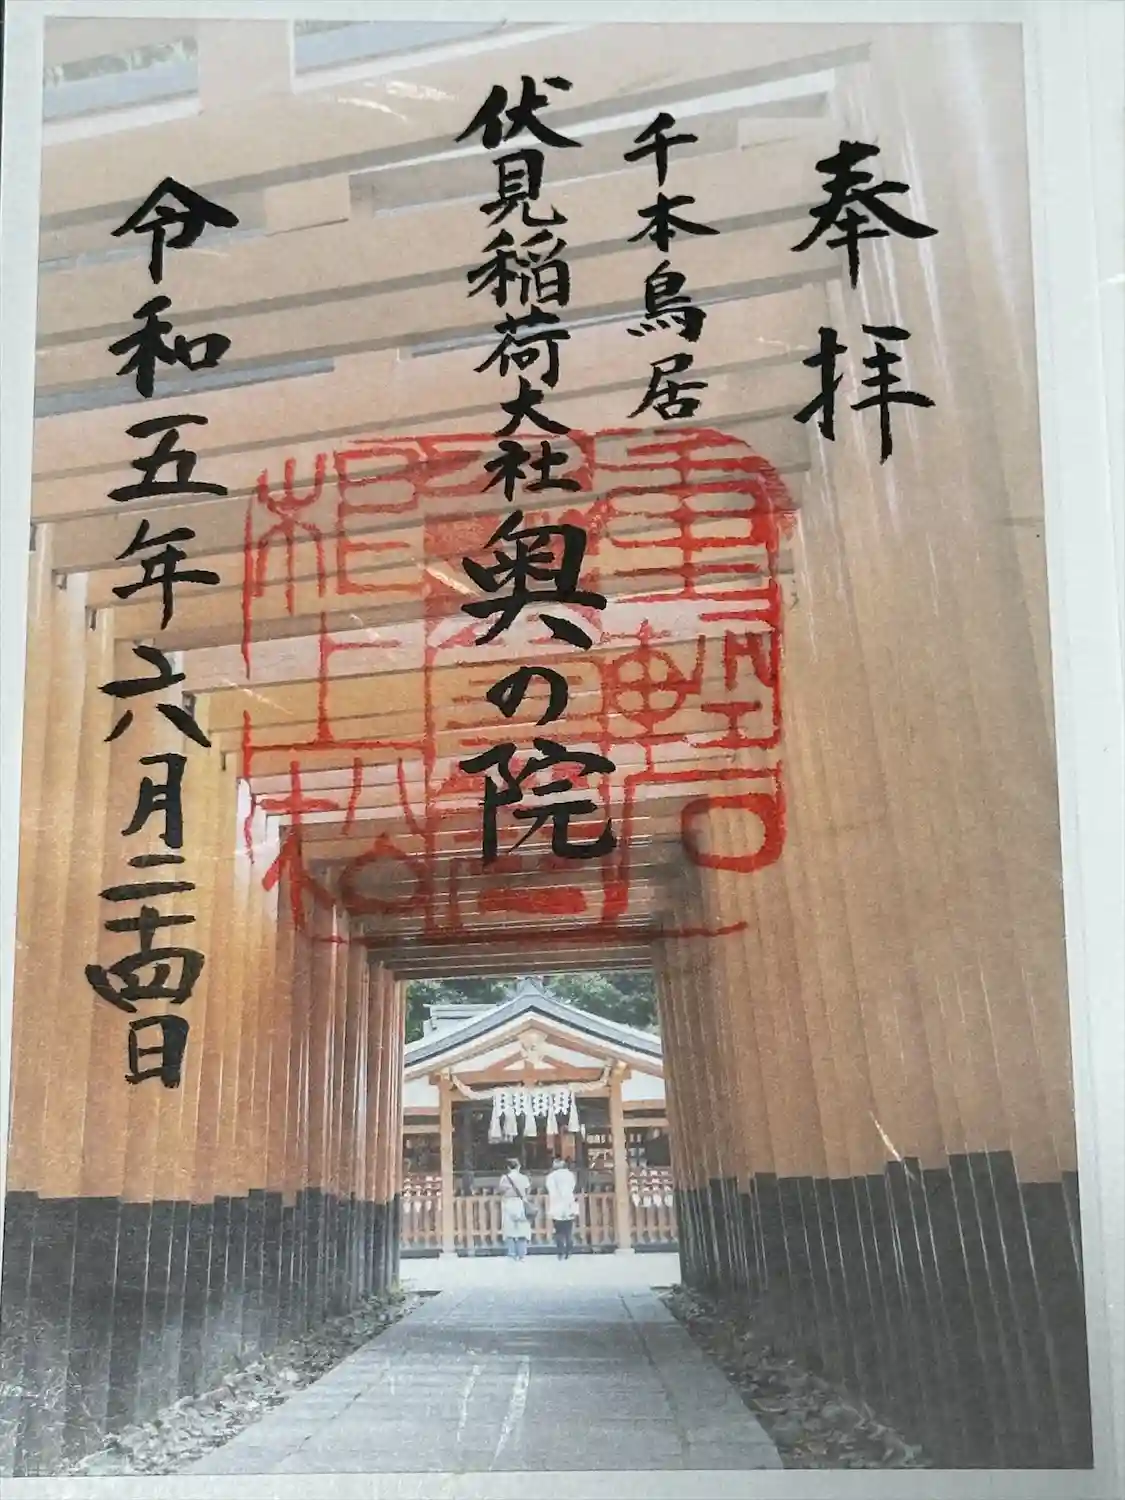 奉拝
千本鳥居
伏見稲荷大社奥の院
令和五年六月二十四日